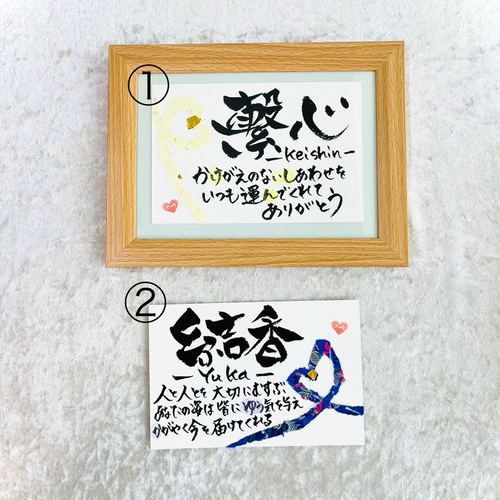 ①
繋心
ーKeishinー
かけがえのないしあわせを
いつも運んでくれて
ありがとう
②
結香
ーYukaー
人と人とを大切にむすぶ
あなたの姿は皆にゆう気を与え
かがやく今を届けてくれる